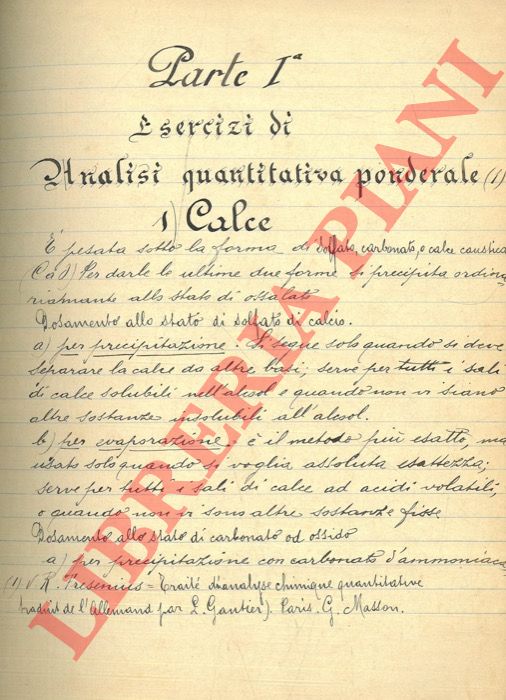 Parte Iª
Esercizi di
Analisi quantitativa ponderale (1)
1) Calce
È pesata sotto la forma di solfato, carbonato, o calce caustica
(CaO) Per darle le ultime due forme si precipita ordina
riamante allo stato di ossalato
Dosamento allo stato di solfato di calcio.
a) per precipitazione. Si segue solo quando si deve
separare la calce da altre basi; serve per tutti i sali
di calce solubili nell'alcool e quando non vi siano
altre sostanze insolubili all'alcool.
b) per evaporazione. è il metodo più esatto, ma
usato solo quando si voglia assoluta esattezza;
serve per tutti i sali di calce ad acidi volatili,
o quando non vi sono altre sostanze fisse
Dosamento allo stato di carbonato od ossido
a) per precipitazione con carbonato d'ammoniaca
(1) V R. Fresenius = Traité d'analyse chimique quantitative
traduit de l'Allemand par L. Gautier). Paris. G. Masson.
LIBRERIA PIANI